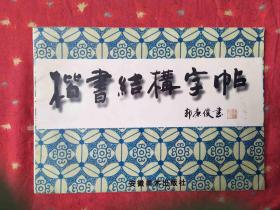 楷書結構字帖
郭康俊書
安徽美术出版社